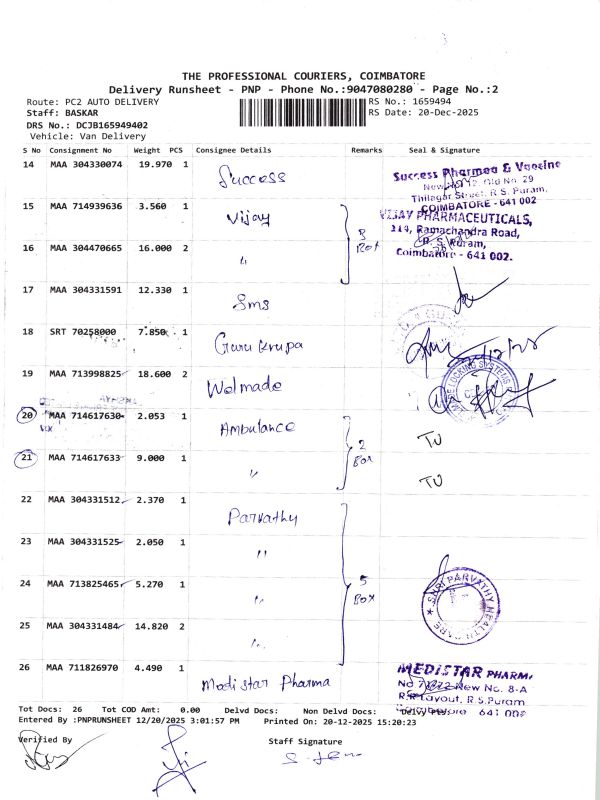 THE PROFESSIONAL COURIERS, COIMBATORE
Delivery Runsheet - PNP - Phone No.:9047080280 - Page No.:2
Route: PC2 AUTO DELIVERY RS No.: 1659494
Staff: BASKAR RS Date: 20-Dec-2025
DRS No.: DCJB165949402
Vehicle: Van Delivery
S No Consignment No Weight PCS Consignee Details Remarks Seal & Signature
14 MAA 304330074 19.970 1 Success
Success Pharmea & Vaccine
New No 12, Old No. 29
Thilagar Street, R.S. Puram,
COIMBATORE - 641 002
15 MAA 714939636 3.560 1 Vijay 3 Box
VIJAY PHARMACEUTICALS,
214, Ramachandra Road,
R. S. Puram,
Coimbatore - 641 002.
16 MAA 304470665 16.000 2 "
17 MAA 304331591 12.330 1 Sms
18 SRT 70258000 7.850 1 Guru Krupa
19 MAA 713998825 18.600 2 Welmade
20 MAA 714617630 2.053 1 Ambulance 2 Box TU
21 MAA 714617633 9.000 1 " TU
22 MAA 304331512 2.370 1 Parvathy 5 Box
23 MAA 304331525 2.050 1 "
24 MAA 713825465 5.270 1 "
SHRI PARVATHY HEALTH CARE
25 MAA 304331484 14.820 2 "
26 MAA 711826970 4.490 1 Medistar Pharma
MEDISTAR PHARMA
New No. 8-A
R.R Layout, R.S.Puram
Coimbatore 641 002
Tot Docs: 26 Tot COD Amt: 0.00 Delvd Docs: Non Delvd Docs:
Entered By :PNPRUNSHEET 12/20/2025 3:01:57 PM Printed On: 20-12-2025 15:20:23
Verified By Staff Signature